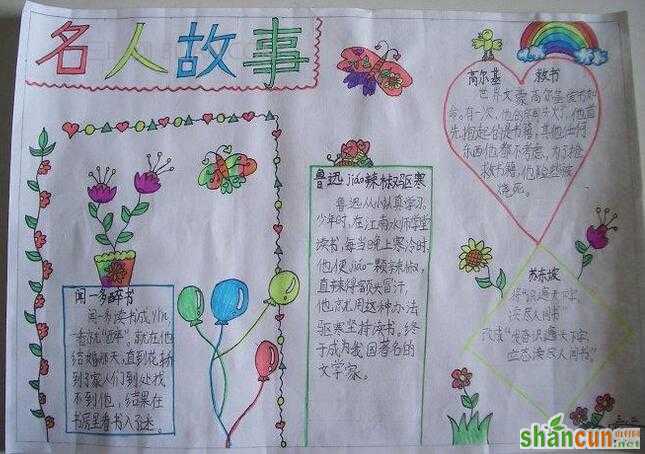 名人故事
高尔基 救书
世界文豪高尔基爱书如
命。有一次,他的房间失火了,他首
先抱起的是书籍,其他任何
东西他都不考虑,为了抢
救书籍,他险些被
烧死。
鲁迅jiáo辣椒驱寒
鲁迅从小认真学习。
少年时,在江南水师学堂
读书,每当晚上寒冷时
他便jiáo一颗辣椒,
直辣得额头冒汗,
他就用这种办法
驱寒坚持读书。终
于成为我国著名的
文学家。
闻一多醉书
闻一多读书成yǐn
一看就“醉”。就在他
结婚那天,直到花轿
到了家人们到处找
不到他,结果在
书房里看书入了迷。
苏东坡
“识遍天下字,
读尽人间书”
改成“发奋识遍天下字,
立志读尽人间书”。
shancun